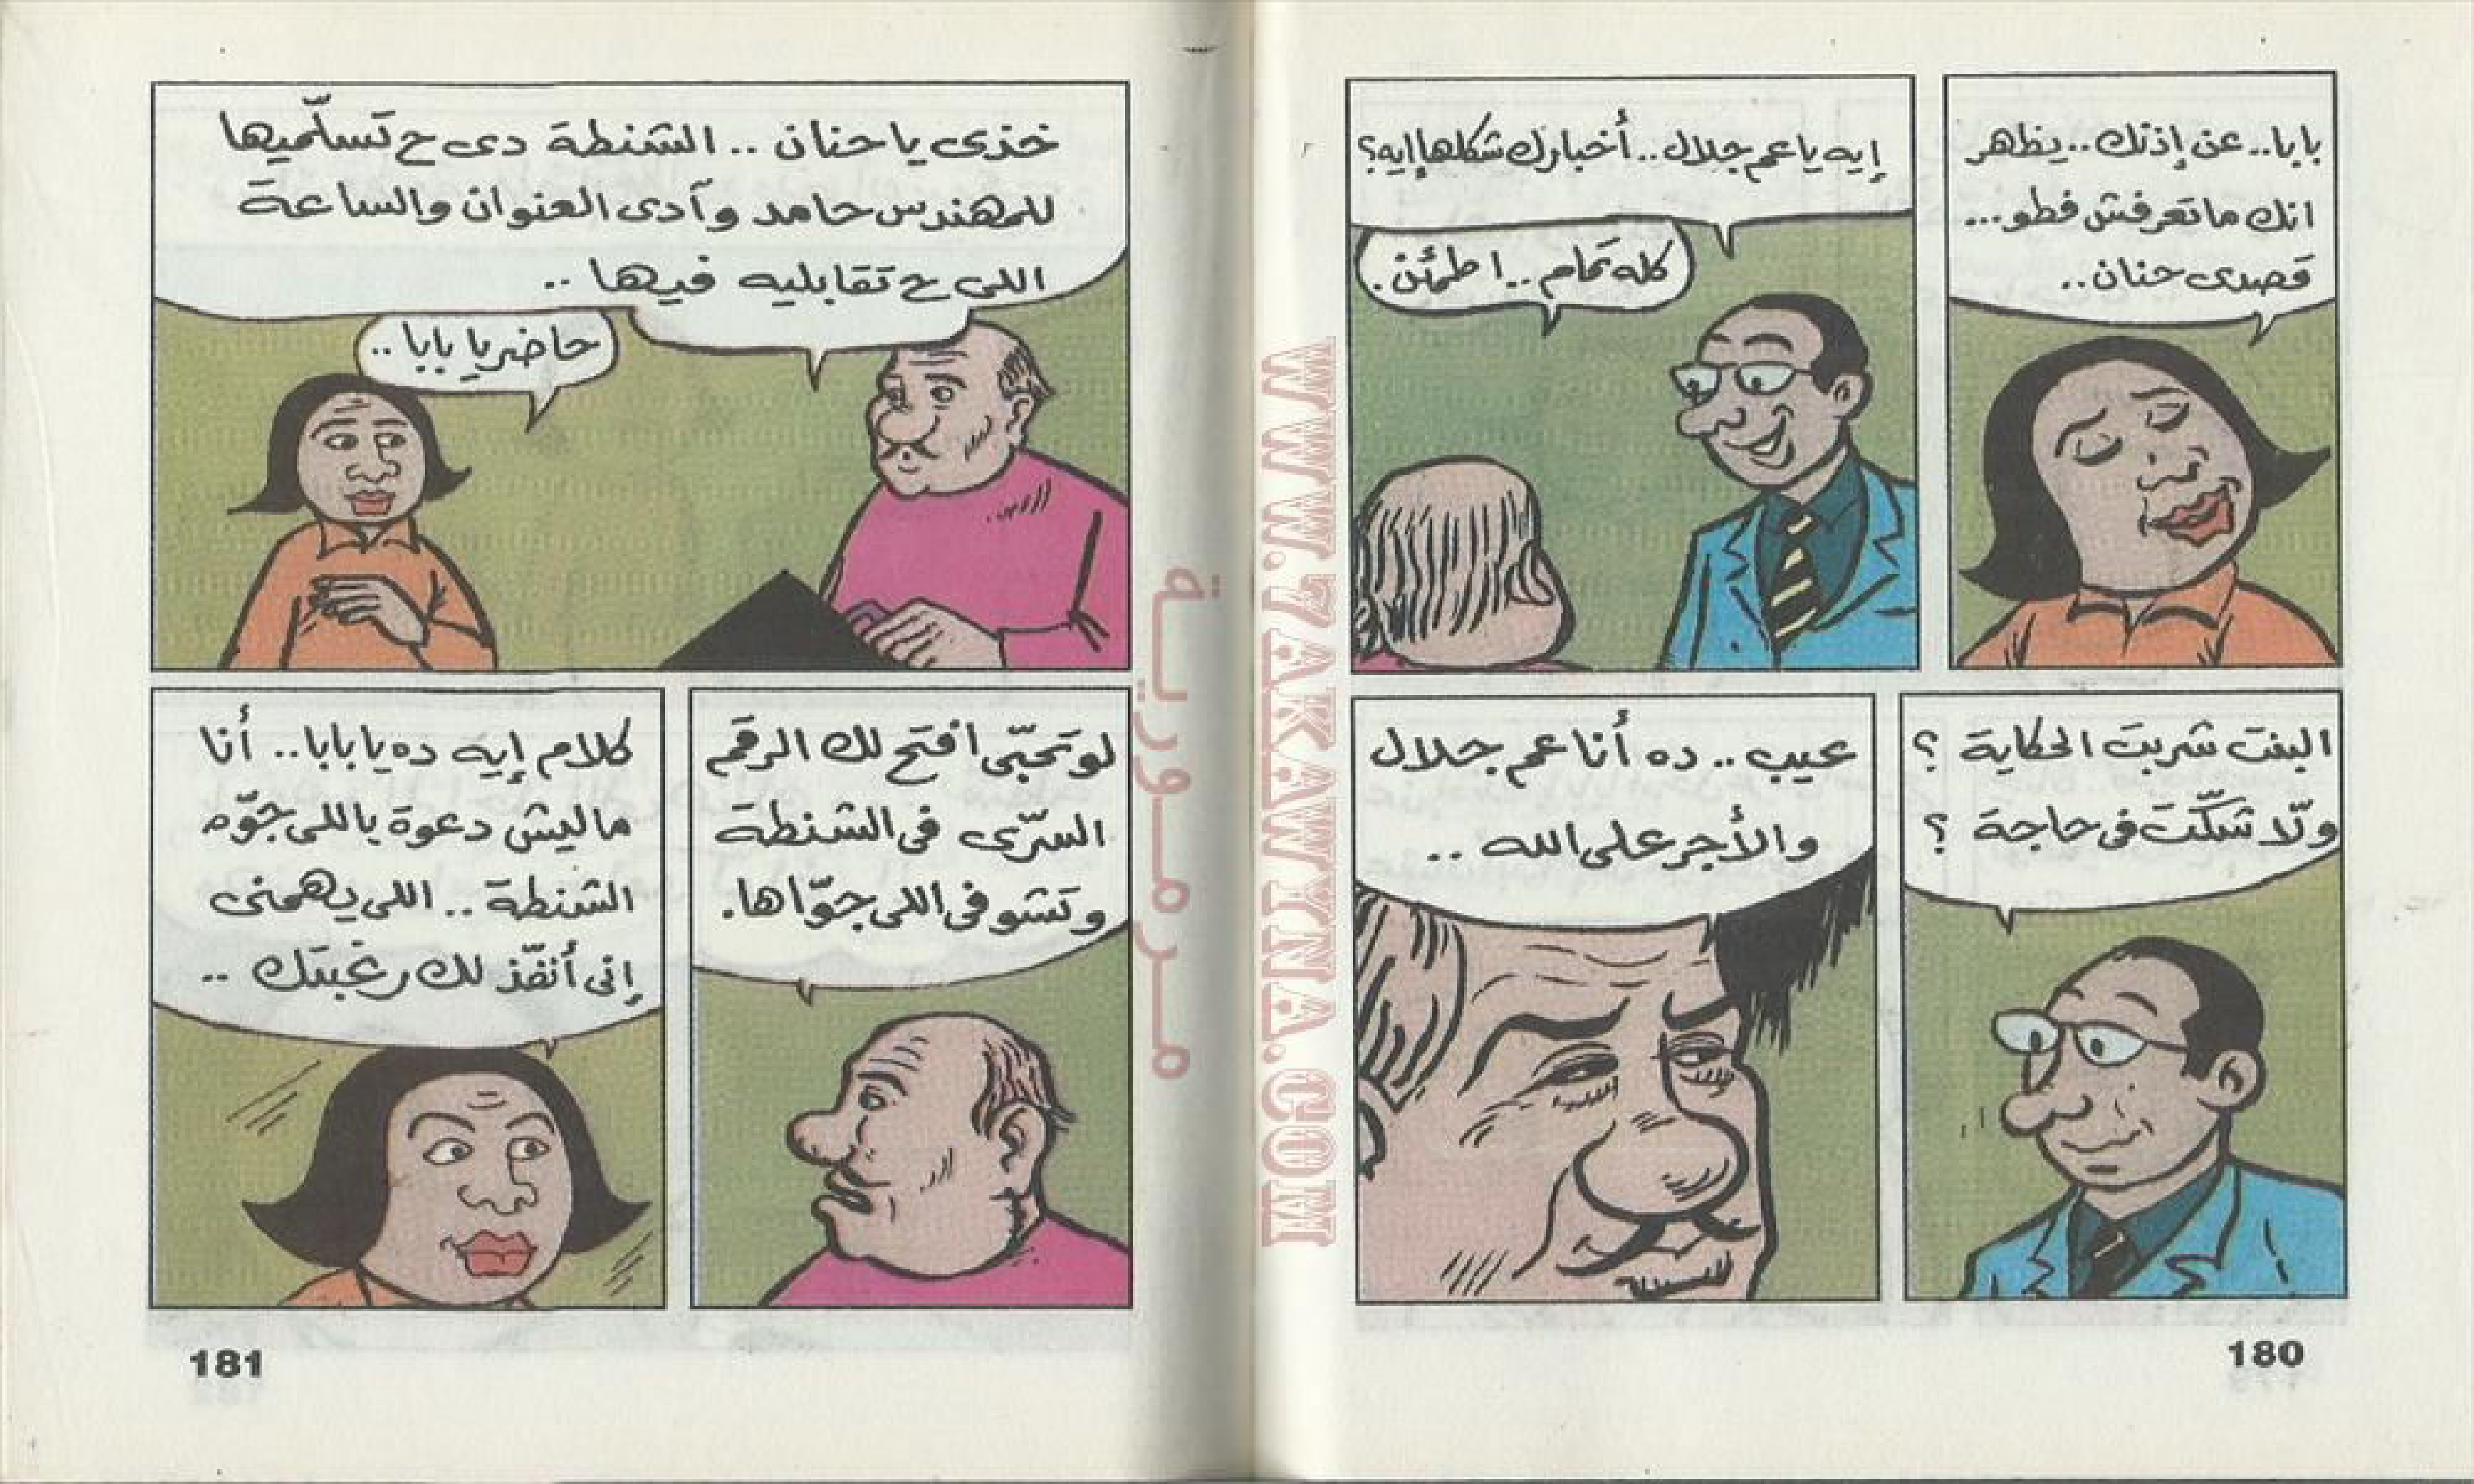 بابا.. عن إذنك.. يظهر
انك ماتعرفش فطو...
قصدى حنان..
إيه ياعم جلال.. أخبارك شكلها إيه؟
كله تمام.. اطمئن.
البنت شربت الحكاية ؟
ولّا شكّت فى حاجة ؟
عيب.. ده أنا عم جلال
والأجر على الله ..
180
خذى يا حنان .. الشنطة دى ح تسلّميها
للمهندس حامد وآدى العنوان والساعة
اللى ح تقابليه فيها ..
حاضر يا بابا ..
لو تحبّى افتح لك الرقم
السرّى فى الشنطة
وتشوفى اللى جوّاها.
كلام إيه ده يا بابا.. أنا
ماليش دعوة باللى جوّه
الشنطة .. اللى يهمنى
إنى أنفّذ لك رغبتك ..
181
مرمورية
WWW.7AKAWYNA.COM